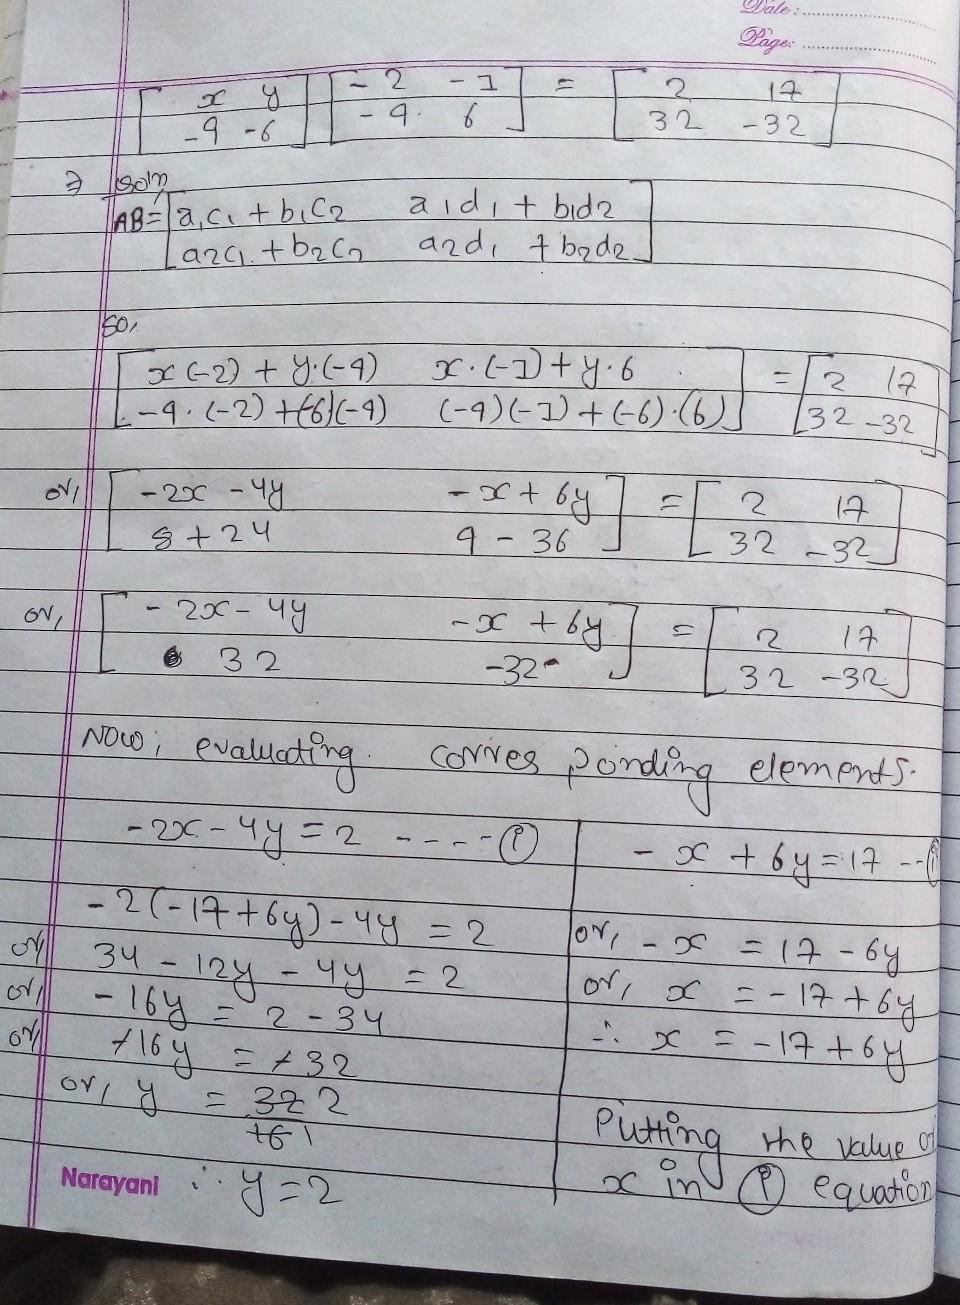 Date:
Page:
[x y -4 -6] [-2 -1 -4 6] = [2 17 32 -32]
⇒ Soln
AB = [a1c1 + b1c2 a1d1 + b1d2
a2c1 + b2c2 a2d1 + b2d2]
So,
[x(-2) + y·(-4) x·(-1) + y·6 = [2 17
-4·(-2) + (-6)(-4) (-4)(-1) + (-6)·(6)] 32 -32]
or, [-2x - 4y -x + 6y = [2 17
8 + 24 4 - 36] 32 -32]
or, [-2x - 4y -x + 6y = [2 17
32 -32] 32 -32]
Now, evaluating corresponding elements.
-2x - 4y = 2 ---- (i)
-2(-17 + 6y) - 4y = 2
or, 34 - 12y - 4y = 2
or, -16y = 2 - 34
or, -16y = -32
or, y = 32 2
16 1
∴ y = 2
-x + 6y = 17 --
or, -x = 17 - 6y
or, x = -17 + 6y
∴ x = -17 + 6y
Putting the value of
x in (i) equation
Narayani